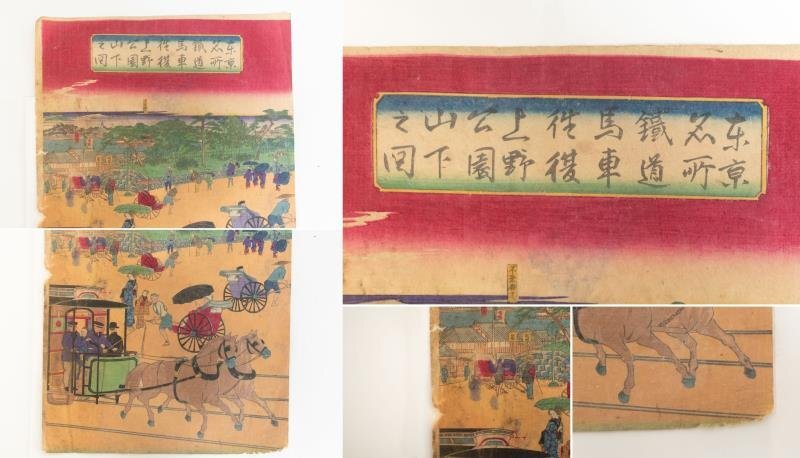 東京
名所
鐵道
馬車
往復
上野
公園
山下
之図
東京
名所
鐵道
馬車
往復
上野
公園
山下
之図
不忍弁天